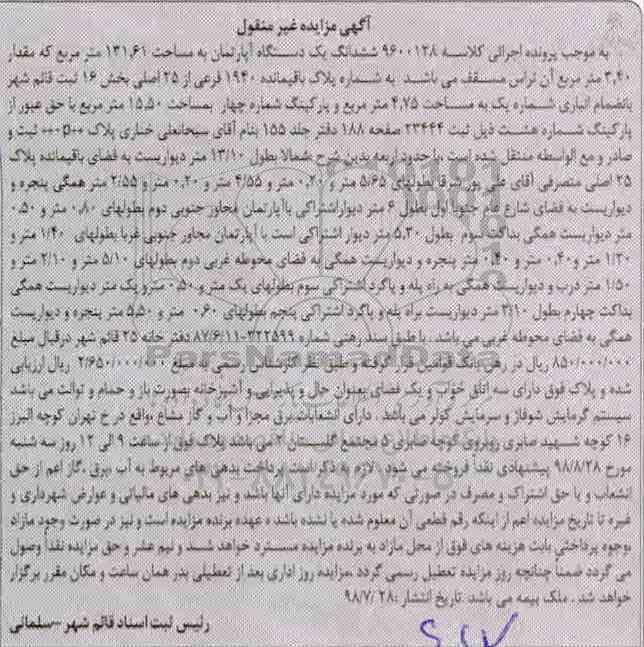 آگهی مزایده غیر منقول
به موجب پرونده اجرائی کلاسه ۹۶۰۰۱۲۸ ششدانگ یک دستگاه آپارتمان به مساحت ۱۳۱,۶۱ متر مربع که مقدار
۳,۴۰ متر مربع آن تراس مسقف می باشد به شماره پلاک باقیمانده ۱۹۴۰ فرعی از ۲۵ اصلی بخش ۱۶ ثبت قائم شهر
بانضمام انباری شماره یک به مساحت ۴,۷۵ متر مربع و پارکینگ شماره چهار بمساحت ۱۵,۵۰ متر مربع با حق عبور از
پارکینگ شماره هشت ذیل ثبت ۲۳۴۴۴ صفحه ۱۸۸ دفتر جلد ۱۵۵ بنام آقای سبحانعلی خناری پلاک ثبت و
صادر و مع الواسطه منتقل شده است ,با حدود اربعه بدین شرح :شمالا بطول ۱۳/۱۰ متر دیواریست به فضای باقیمانده پلاک
۲۵ اصلی متصرفی آقای علی پور شرقا بطولهای ۵/۶۵ متر و ۰,۲۰ متر و ۴/۵۵ متر و ۰,۲۰ متر و ۲/۵۵ متر همگی پنجره و
دیواریست به فضای شارع عام جنوبا اول بطول ۶ متر دیواراشتراکی با آپارتمان مجاور جنوبی دوم بطولهای ۰,۸۰ متر و ۰,۵۰
متر دیواریست همگی بداکت سوم بطول ۵,۳۰ متر دیوار اشتراکی است با آپارتمان مجاور جنوبی غربا بطولهای ۱/۴۰ متر و
۱/۳۰ متر و ۰,۴۰ متر و ۰,۴۰ متر پنجره و دیواریست همگی به فضای محوطه غربی دوم بطولهای ۵/۱۰ متر و ۲/۱۰ متر و
۱/۵۰ متر درب و دیواریست همگی به راه پله و پاگرد اشتراکی سوم بطولهای یک متر و ۰,۵۰ مترو یک متر دیواریست همگی
بداکت چهارم بطول ۳/۱۰ متر دیواریست براه پله و پاگرد اشتراکی پنجم بطولهای ۰,۶۰ متر و ۵,۵۰ متر پنجره و دیواریست
همگی به فضای محوطه غربی می باشد . با طبق سند رهنی شماره ۳۲۲۵۹۹-۸۷/۶/۱۱ دفتر خانه ۲۵ قائم شهر درقبال مبلغ
۸۵۰/۰۰۰/۰۰۰ ریال در رهن بانک قوامین قرار گرفته و طبق نظر کارشناس رسمی به مبلغ ۲/۶۵۰/۰۰۰/۰۰۰ ریال ارزیابی
شده و پلاک فوق دارای سه اتاق خواب و یک فضای بعنوان حال و پذیرایی و آشپزخانه بصورت باز و حمام و توالت می باشد
سیستم گرمایش شوفاژ و سرمایش کولر می باشد . دارای انشعابات برق مجزا و آب و گاز مشاع ,واقع در خ تهران کوچه البرز
۱۶ کوچه شهید صابری روبروی کوچه صابری ۵ مجتمع گلیستان ۲ می باشد پلاک فوق از ساعت ۹ الی ۱۲ روز سه شنبه
مورخ ۹۸/۸/۲۸ پیشنهادی نقدأ فروخته می شود ,لازم به ذکر است پرداخت بدهی های مربوط به آب ,برق ,گاز اعم از حق
انشعاب و یا حق اشتراک و مصرف در صورتی که مورد مزایده دارای آنها باشد و نیز بدهی های مالیاتی و عوارض شهرداری و
غیره تا تاریخ مزایده اعم از اینکه رقم قطعی آن معلوم شده یا نشده باشد ، عهده برنده مزایده است و نیز در صورت وجود مازاد
,وجوه پرداختی بابت هزینه های فوق از محل مازاد به برنده مزایده مسترد خواهد شد و نیم عشر و حق مزایده نقدأ وصول
می گردد ضمناً چنانچه روز مزایده تعطیل رسمی گردد ,مزایده روز اداری بعد از تعطیلی بدر همان ساعت و مکان مقرر برگزار
خواهد شد . ملک بیمه می باشد تاریخ انتشار :۹۸/۷/۲۸
رئیس ثبت اسناد قائم شهر –سلمانی
ParsNamadData